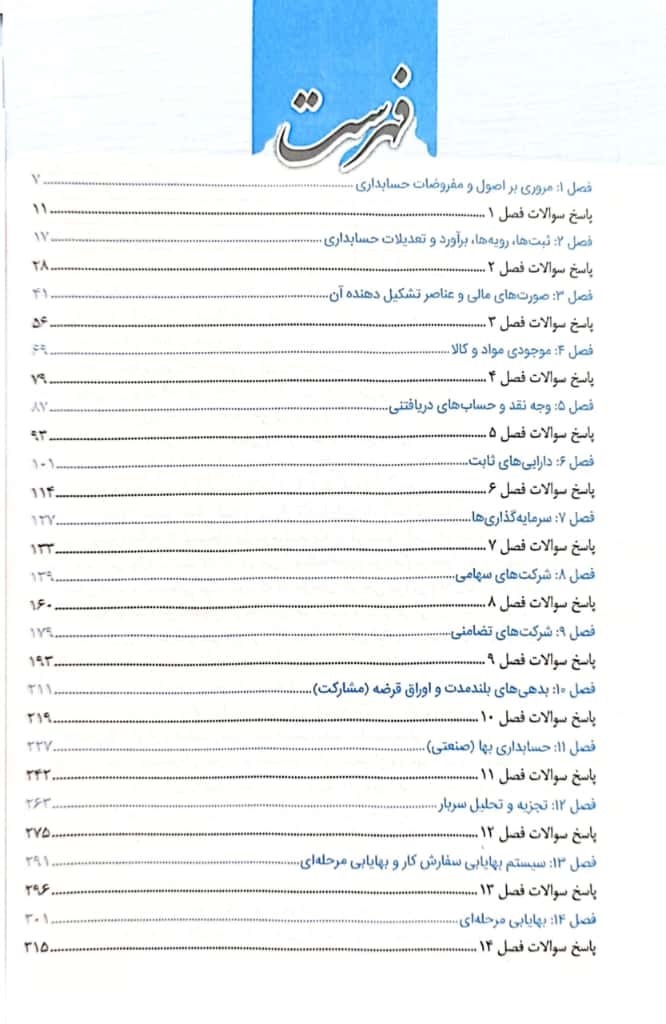 فهرست
فصل ۱: مروری بر اصول و مفروضات حسابداری ........ ۷
پاسخ سوالات فصل ۱ ........ ۱۱
فصل ۲: ثبت‌ها، رویه‌ها، برآورد و تعدیلات حسابداری ........ ۱۷
پاسخ سوالات فصل ۲ ........ ۲۸
فصل ۳: صورت‌های مالی و عناصر تشکیل دهنده آن ........ ۴۱
پاسخ سوالات فصل ۳ ........ ۵۶
فصل ۴: موجودی مواد و کالا ........ ۶۹
پاسخ سوالات فصل ۴ ........ ۷۹
فصل ۵: وجه نقد و حساب‌های دریافتنی ........ ۸۷
پاسخ سوالات فصل ۵ ........ ۹۳
فصل ۶: دارایی‌های ثابت ........ ۱۰۱
پاسخ سوالات فصل ۶ ........ ۱۱۴
فصل ۷: سرمایه‌گذاری‌ها ........ ۱۲۷
پاسخ سوالات فصل ۷ ........ ۱۳۳
فصل ۸: شرکت‌های سهامی ........ ۱۳۹
پاسخ سوالات فصل ۸ ........ ۱۶۰
فصل ۹: شرکت‌های تضامنی ........ ۱۷۹
پاسخ سوالات فصل ۹ ........ ۱۹۳
فصل ۱۰: بدهی‌های بلندمدت و اوراق قرضه (مشارکت) ........ ۲۱۱
پاسخ سوالات فصل ۱۰ ........ ۲۱۹
فصل ۱۱: حسابداری بها (صنعتی) ........ ۲۲۷
پاسخ سوالات فصل ۱۱ ........ ۲۴۲
فصل ۱۲: تجزیه و تحلیل سربار ........ ۲۶۳
پاسخ سوالات فصل ۱۲ ........ ۲۷۵
فصل ۱۳: سیستم بهایابی سفارش کار و بهایابی مرحله‌ای ........ ۲۹۱
پاسخ سوالات فصل ۱۳ ........ ۲۹۶
فصل ۱۴: بهایابی مرحله‌ای ........ ۳۰۱
پاسخ سوالات فصل ۱۴ ........ ۳۱۵